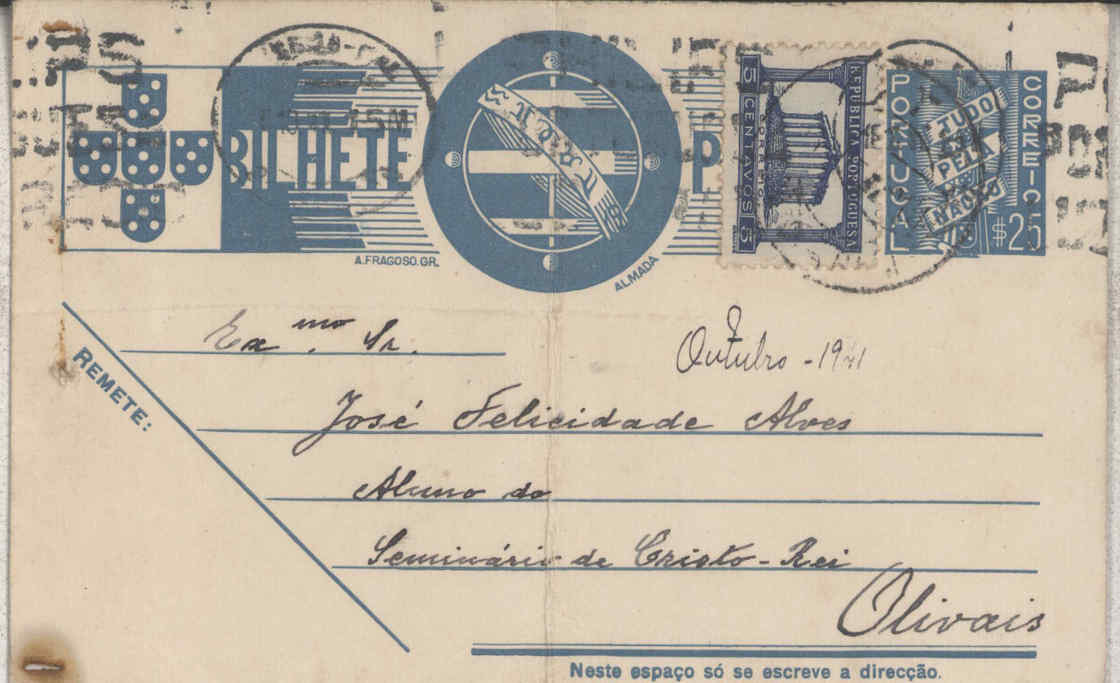 BILHETE
P
5 CENTAVOS 5
CORREIO
REPUBLICA PORTUGUESA
PORTUGAL
CORREIO
TUDO
PELA
NAÇÃO
$25
A. FRAGOSO. GR.
ALMADA
REMETE:
Ex.mo Sr.
Outubro - 1941
José Felicidade Alves
Aluno do
Seminário de Cristo-Rei
Olivais
Neste espaço só se escreve a direcção.